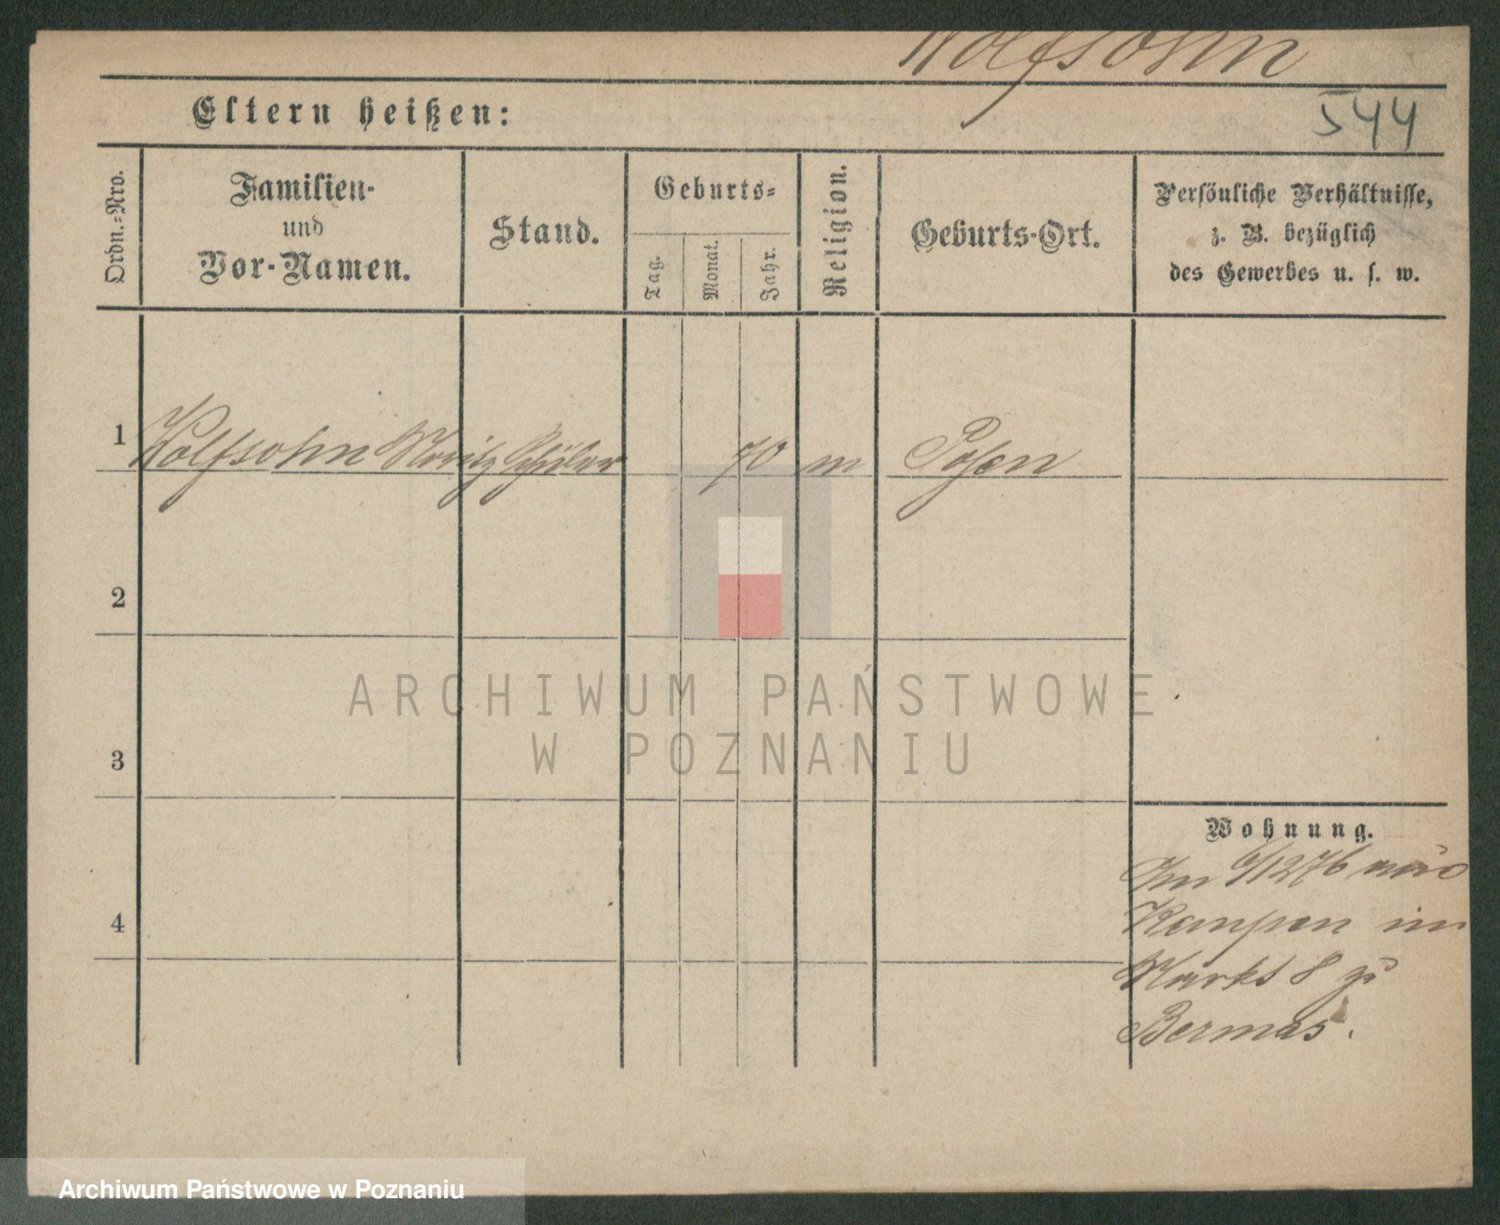 Wolfsohn
Eltern heißen:
544
Ordn.-Nro.
Familien-
und
Vor-Namen.
Stand.
Geburts-
Tag.
Monat.
Jahr.
Religion.
Geburts-Ort.
Persönliche Verhältnisse,
z. B. bezüglich
des Gewerbes u. s. w.
1 Wolfsohn Moritz Schüler 70 m Posen
2
3
4
Wohnung.
6/12 76
Kempen im
Markt 8 zu
Bermas.
ARCHIWUM PAŃSTWOWE
W POZNANIU
Archiwum Państwowe w Poznaniu